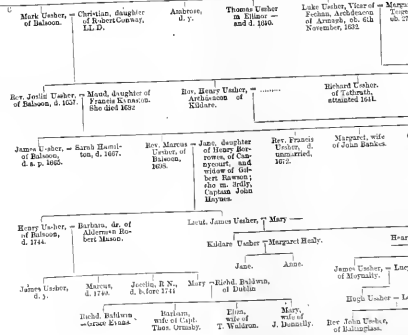 Mark Ussher, of Balsoon. = Christian, daughter of Robert Conway, LL.D.
Ambrose, d. y.
Thomas Ussher m Ellinor — and d. 1610.
Luke Ussher, Vicar of Feghan, Archdeacon of Armagh, ob. 6th November, 1632
Rev. Joslin Ussher, of Balsoon, d. 1637. = Maud, daughter of Francis Kynaston. She died 1632
Rev. Henry Ussher, Archdeacon of Kildare. = ........
Richard Ussher, of Tethrath, attainted 1641.
James Ussher, of Balsoon, d. s. p. 1665. = Sarah Hamilton, d. 1667.
Rev. Marcus Ussher, of Balsoon, = Jane, daughter of Henry Borrowes, of Cannycourt, and widow of Gilbert Rawson; she m. 3rdly, Captain John Haynes.
Rev. Francis Ussher, d. unmarried, 1672.
Margaret, wife of John Bankes.
Henry Ussher, of Balsoon, d. 1744. = Barbara, dr. of Alderman Robert Mason.
Lieut. James Ussher, = Mary —
Kildare Ussher = Margaret Healy.
Jane.
Anne.
James Ussher, of Moynalty.
James Ussher, d. y.
Marcus, d. 1740.
Jocelin, R.N., d. before 1744
Mary = Richd. Baldwin, of Dublin
Hugh Ussher
Richd. Baldwin = Grace Evans.
Barbara, wife of Capt. Thos. Ormsby.
Eliza, wife of T. Waldron.
Mary, wife of J. Donnally.
Rev John Ussher, of Baltinglass.